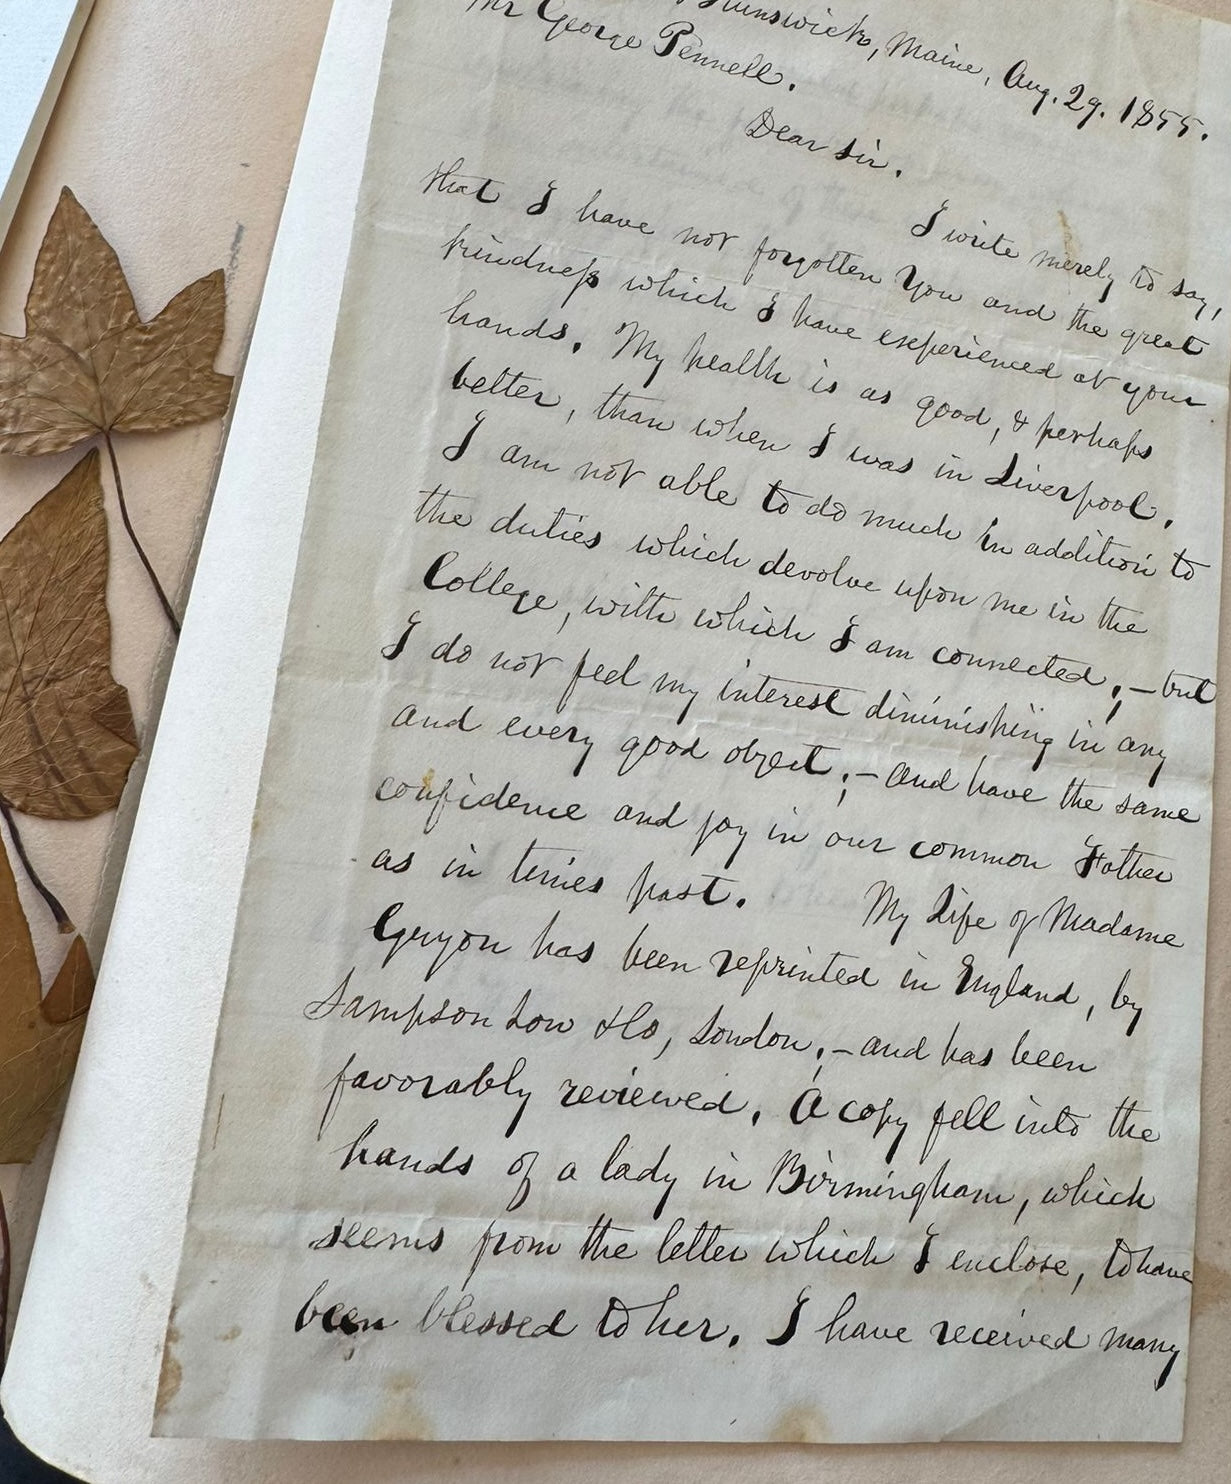 Brunswick, Maine, Aug. 29. 1855.
Mr George Pennell.
Dear Sir.
I write merely to say,
that I have not forgotten you and the great
kindness which I have experienced at your
hands. My health is as good, & perhaps
better, than when I was in Liverpool.
I am not able to do much in addition to
the duties which devolve upon me in the
College, with which I am connected; – but
I do not feel my interest diminishing in any
and every good object; – and have the same
confidence and joy in our common Father
as in times past. My Life of Madame
Guyon has been reprinted in England, by
Sampson Low & Co, London; – and has been
favorably reviewed. A copy fell into the
hands of a lady in Birmingham, which
seems from the letter which I enclose, to have
been blessed to her. I have received many